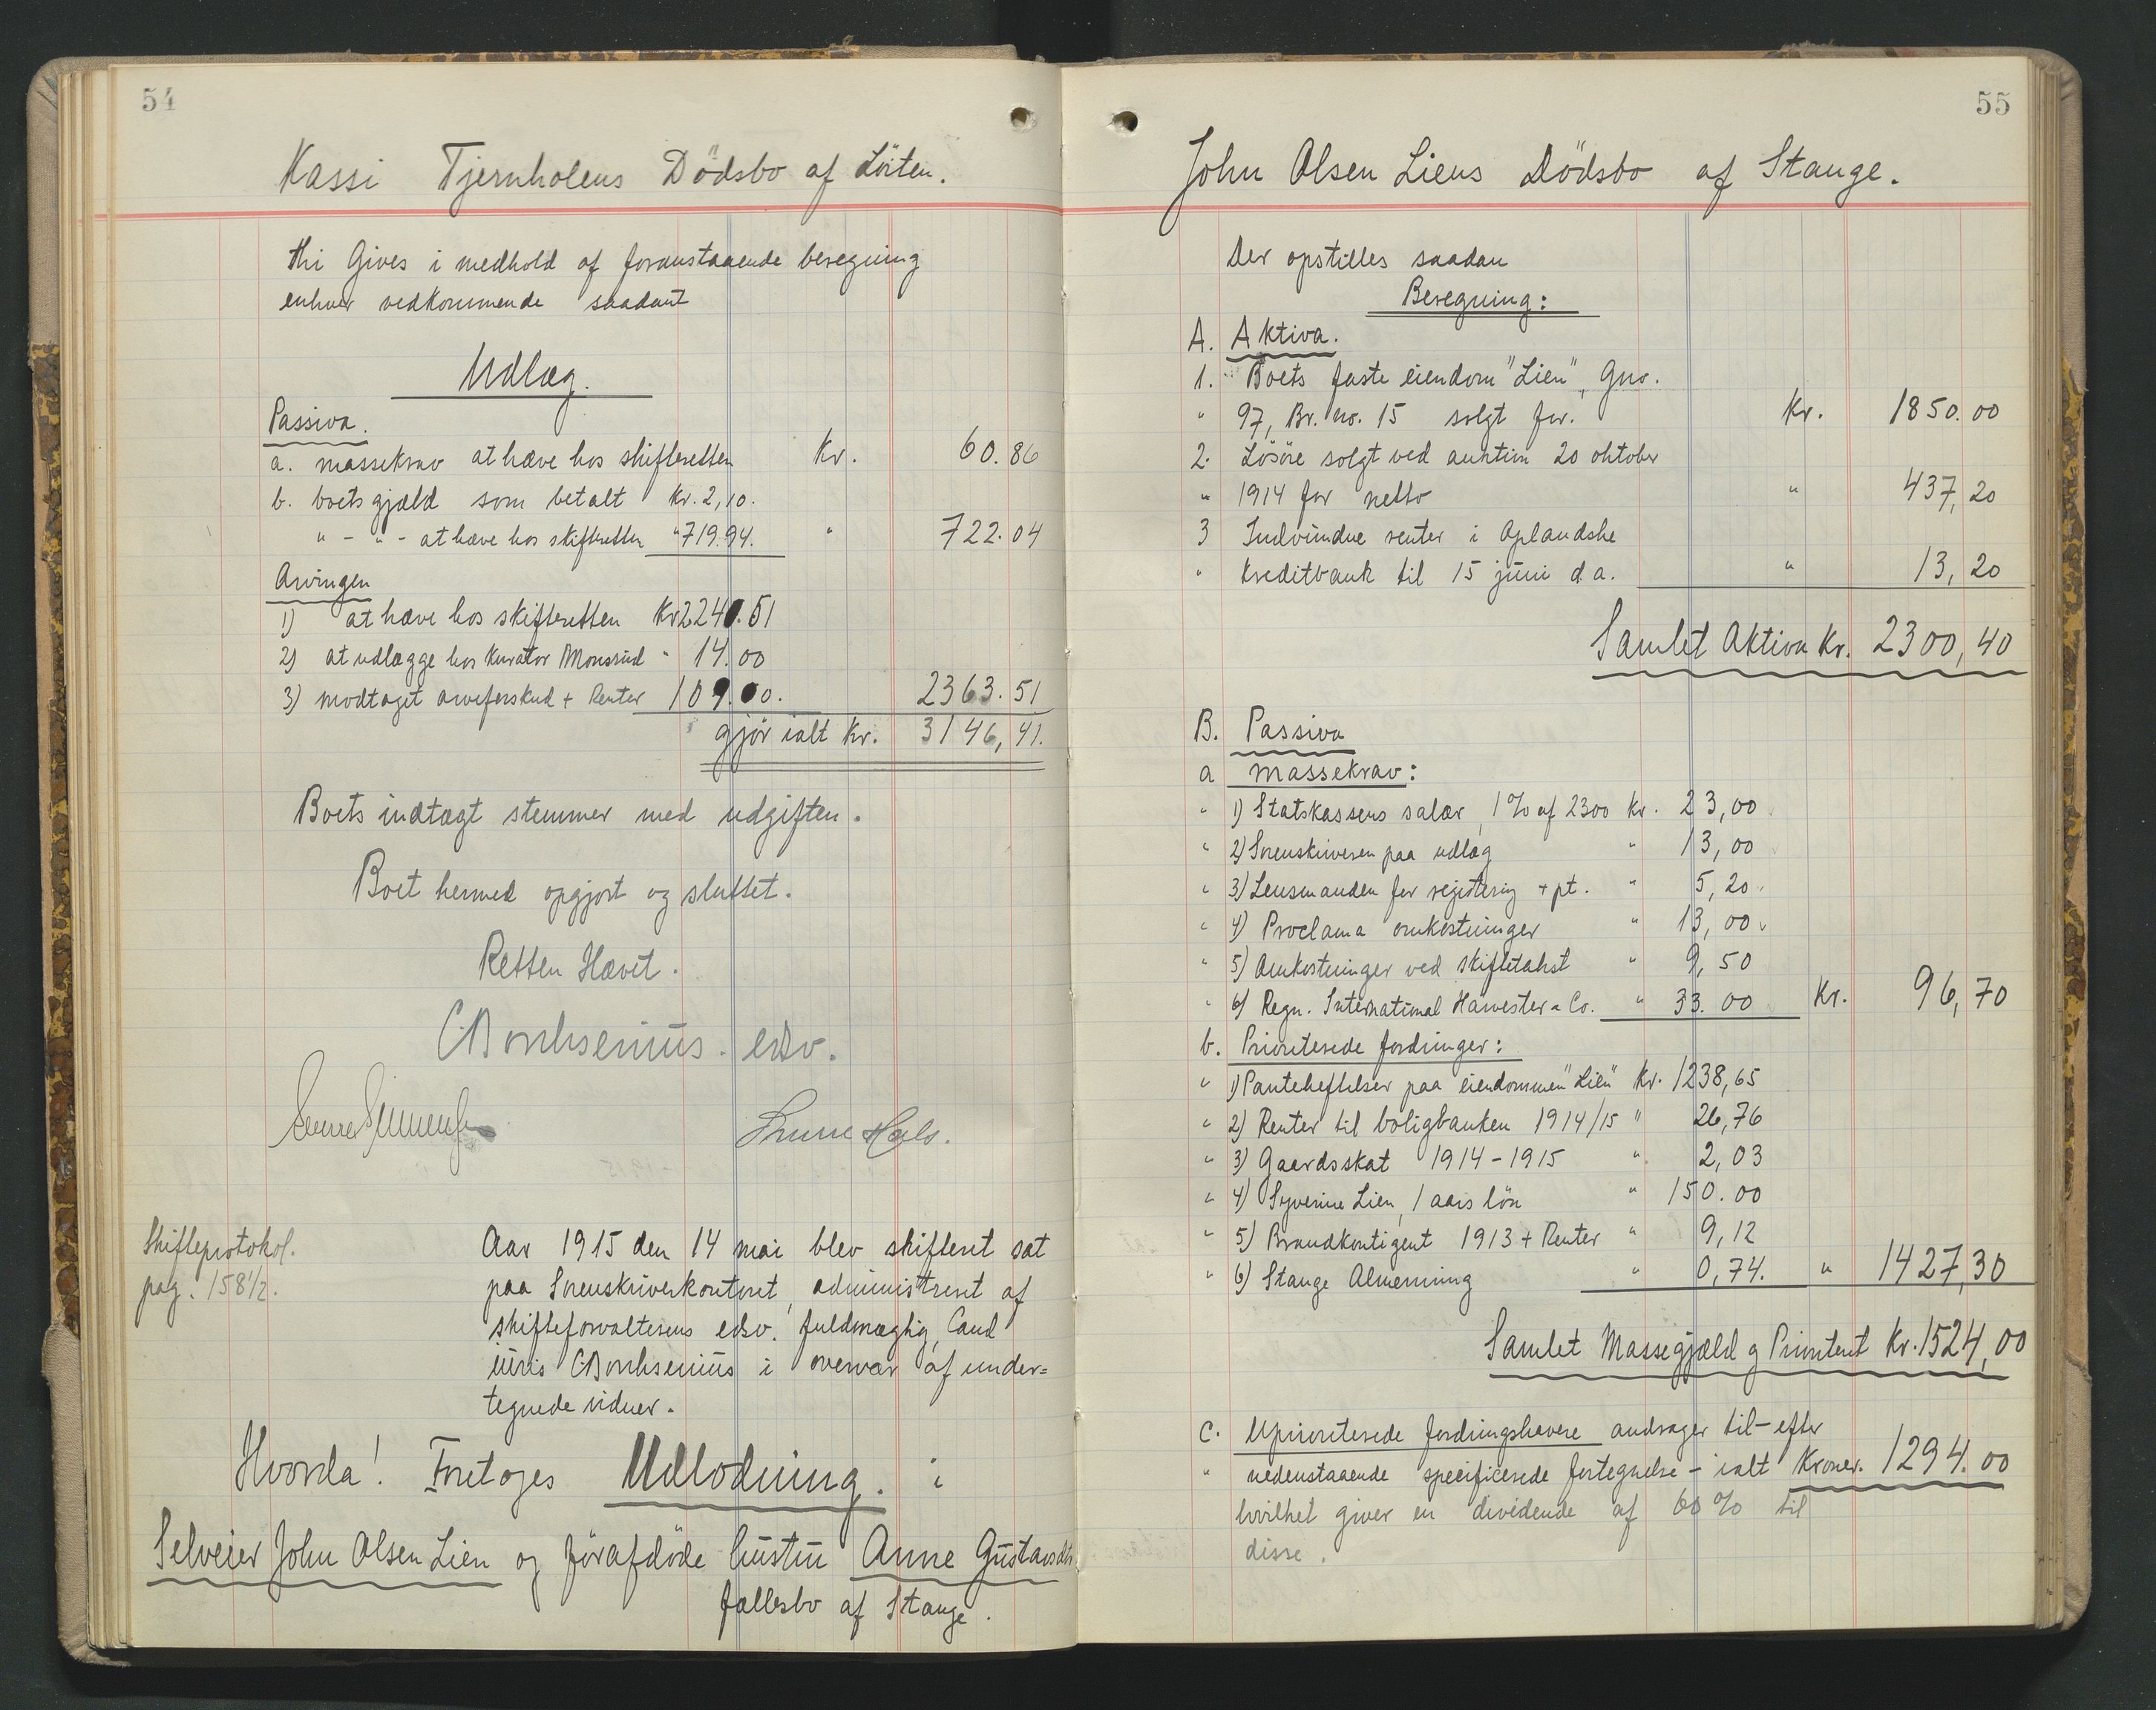 54
Kassi Tjernholens Dödsbo af Löiten.
thi Gives i medhold af foranstaaende beregning
enhver vedkommende saadant
Udlæg.
Passiva.
a. massekrav at hæve hos skifteretten Kr. 60.86
b. boets gjæld som betalt Kr. 2,10.
" - " - at hæve hos skifteretten " 719.94. " 722.04
Arvingen
1) at hæve hos skifteretten Kr 2240.51
2) at udlægge hos Kurator Monsrud " 14.00
3) modtaget arveforskud + Renter 109.00. 2363.51
gjör ialt Kr. 3146,41.
Boets indtægt stemmer med udgiften.
Boet hermed opgjort og sluttet.
Retten Hævet.
C Borchsenius. edsv.
Hals.
Skifteprotokol.
pag. 158 1/2.
Aar 1915 den 14 mai blev skifteret sat
paa Sorenskriverkontoret, administreret af
skifteforvalterens edsv. fuldmægtig, Cand
iuris C Borchsenius i overvær af under=
tegnede vidner.
Hvorda! Foretages Udlodning. i
Selveier John Olsen Lien og förafdöde hustru Anne Gustavsdtr
fællesbo af Stange.
55
John Olsen Liens Dödsbo af Stange.
Der opstilles saadan
Beregning:
A. Aktiva.
1. Boets faste eiendom "Lien", Gno.
" 97, Br. no. 15 solgt for. Kr. 1850.00
2. Lösöre solgt ved auktion 20 oktober
" 1914 for netto " 437,20
3 Indvundne renter i Oplandske
" Kreditbank til 15 juni d.a. " 13,20
Samlet Aktiva Kr. 2300,40
B. Passiva
a massekrav:
" 1) Statskassens salær, 1% af 2300 Kr. 23,00
" 2) Sorenskriveren paa udlæg " 13,00
" 3) Lensmanden for registering + pt. " 5,20
" 4) Proclama omkostninger " 13,00
" 5) Omkostninger ved skiftetakst " 9,50
" 6) Regn. International Harvester & Co. " 33.00 Kr. 96,70
b. Prioriterede fordringer:
" 1) Panteheftelser paa eiendommen "Lien" Kr. 1238,65
" 2) Renter til boligbanken 1914/15 " 26,76
" 3) Gaardsskat 1914-1915 " 2,03
" 4) Syverine Lien, 1 aars lön " 150.00
" 5) Brandkontigent 1913 + Renter " 9,12
" 6) Stange Almenning " 0,74. " 1427,30
Samlet Massegjæld og Prioritert Kr. 1524,00
C. Uprioriterede fordringshavere andrager til - efter
" nedenstaaende specificerede fortegnelse - ialt Kroner. 1294.00
hvilket giver en dividende af 60% til
disse.